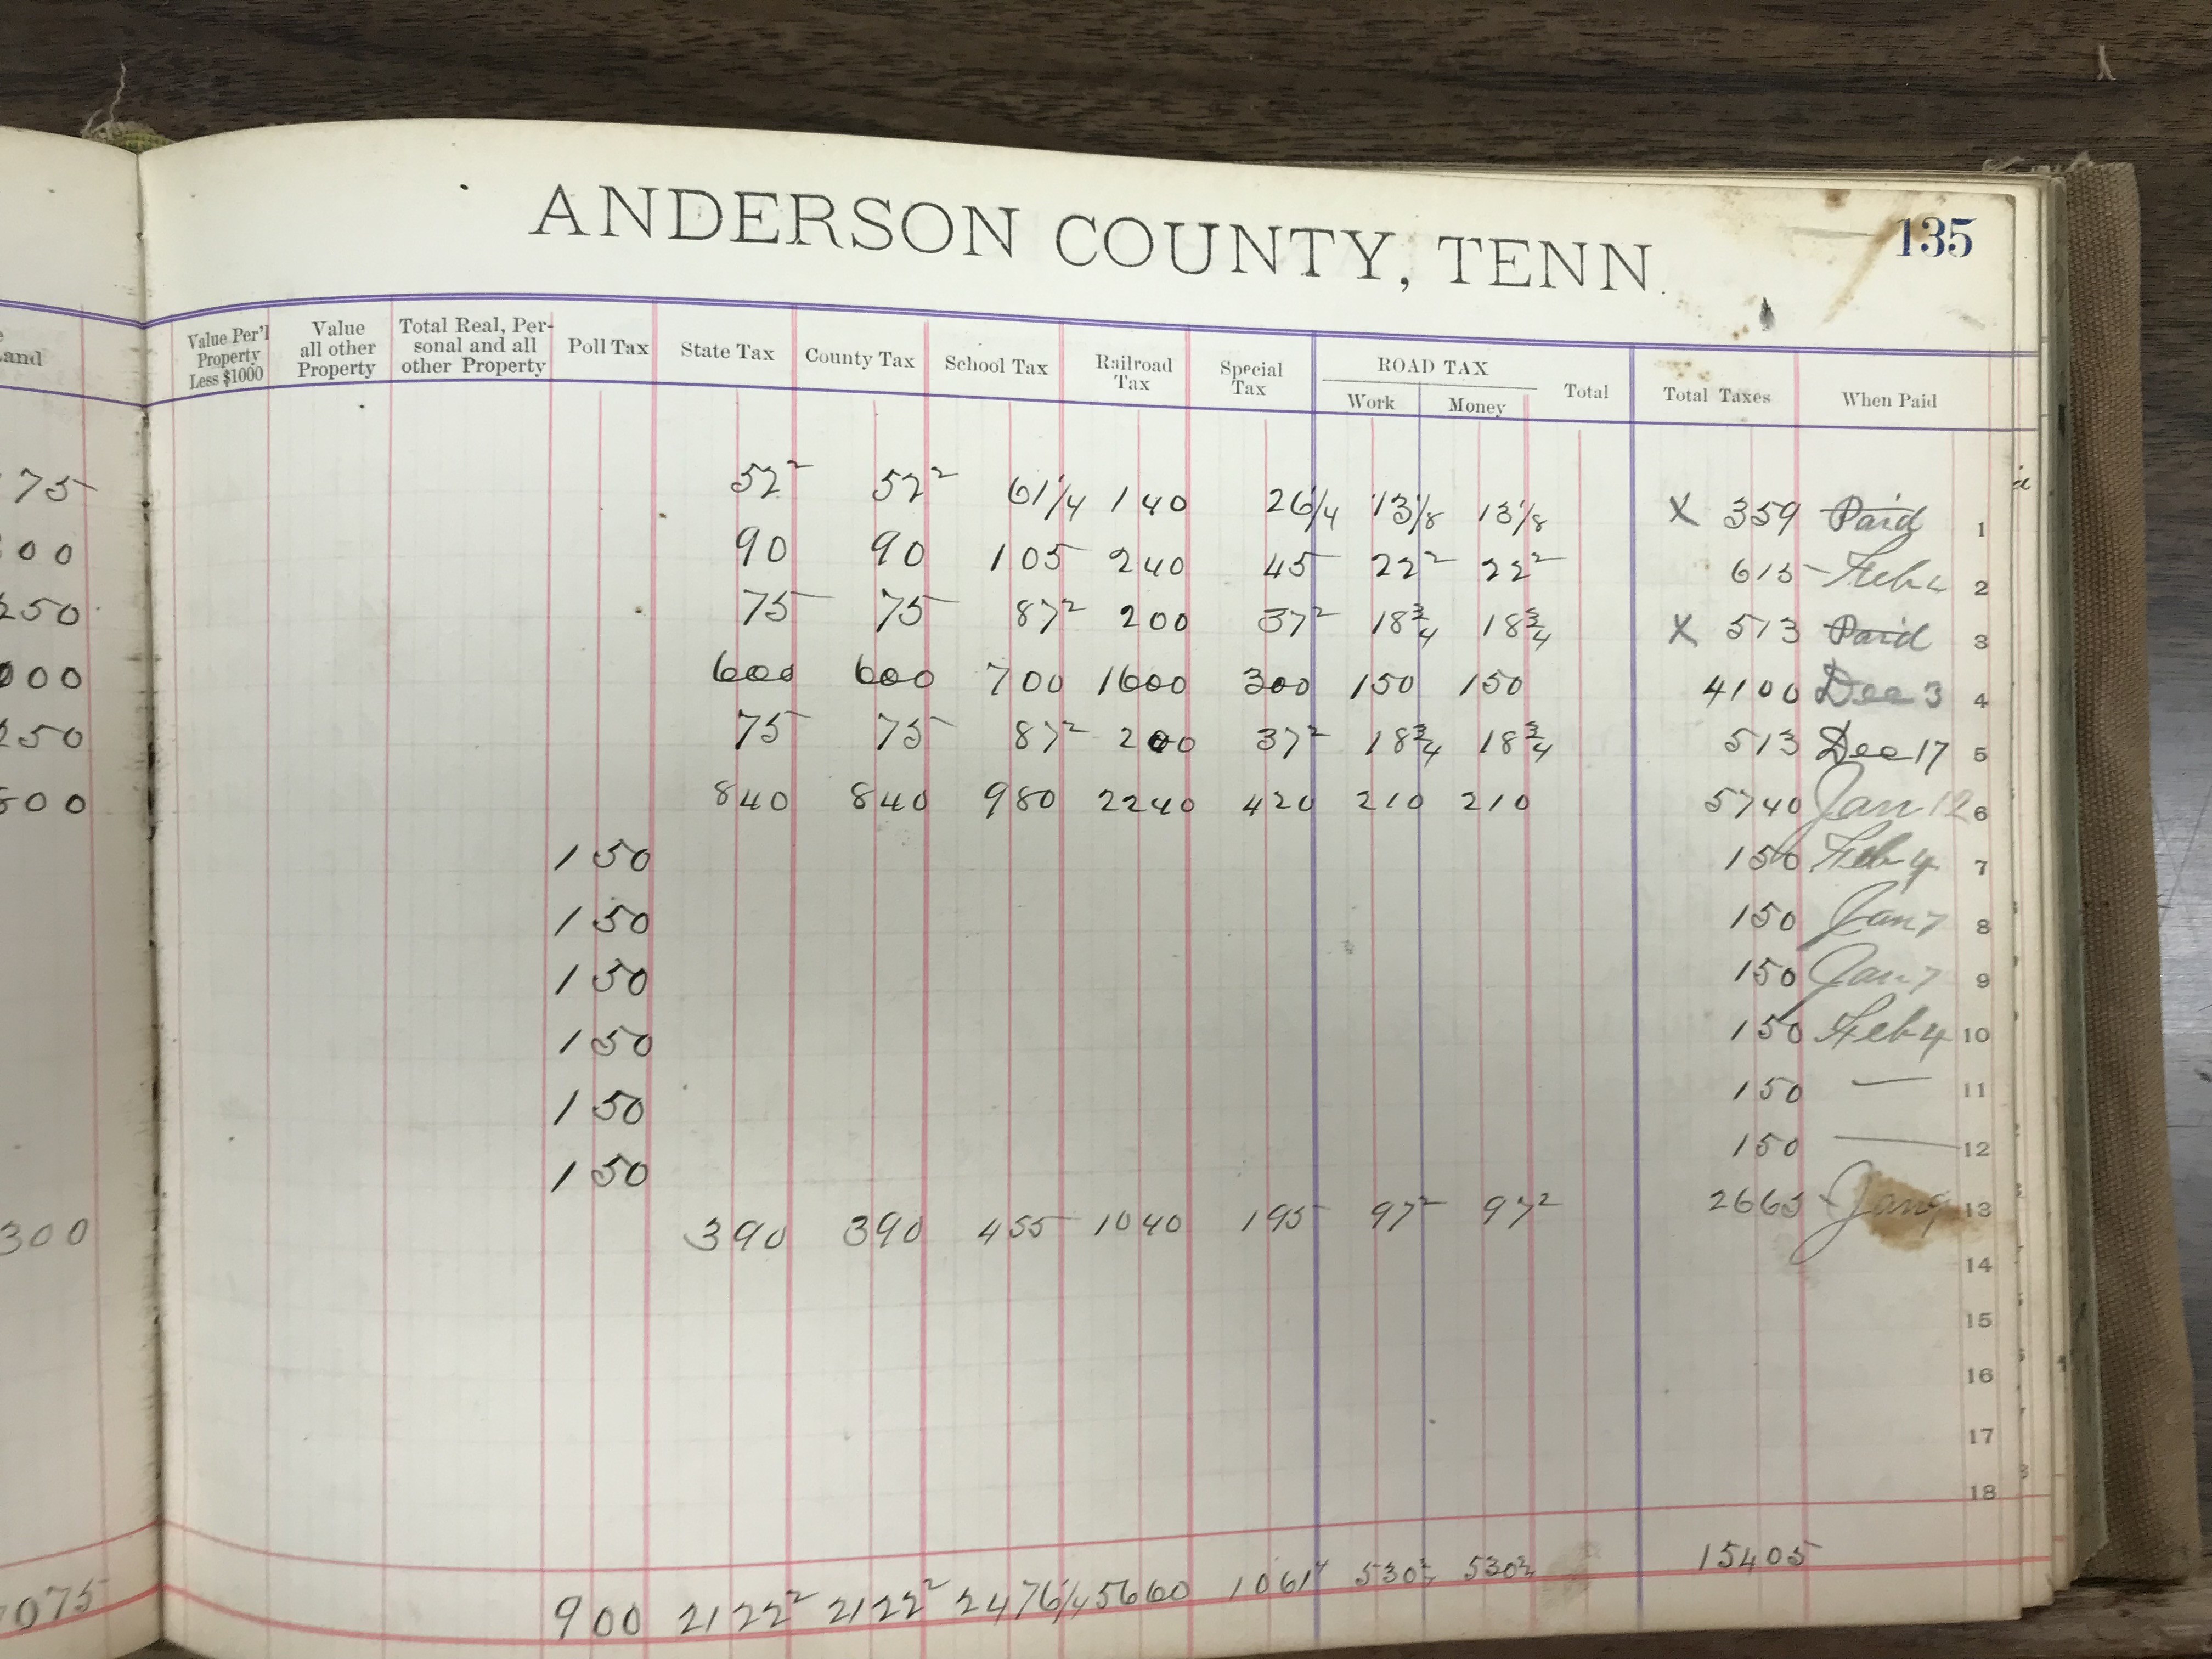 ANDERSON COUNTY, TENN.
135
and
Value Per'l Property Less $1000
Value all other Property
Total Real, Personal and all other Property
Poll Tax
State Tax
County Tax
School Tax
Railroad Tax
Special Tax
ROAD TAX
Work
Money
Total
Total Taxes
When Paid
75 52² 52² 61 1/4 1 40 26 1/4 13 1/8 13 1/8 X 3 59 Paid 1
00 90 90 1 05 2 40 45 22² 22² 6 15 Feb 4 2
250 75 75 87² 2 00 37² 18 3/4 18 3/4 X 5 13 Paid 3
000 6 00 6 00 7 00 16 00 3 00 1 50 1 50 41 00 Dec 3 4
250 75 75 87² 2 00 37² 18 3/4 18 3/4 5 13 Dec 17 5
00 8 40 8 40 9 80 22 40 4 20 2 10 2 10 57 40 Jan 12 6
1 50 1 50 Feb 4 7
1 50 1 50 Jan 7 8
1 50 1 50 Jan 7 9
1 50 1 50 Feb 4 10
1 50 1 50 — 11
1 50 1 50 — 12
300 3 90 3 90 4 55 10 40 1 95 97² 97² 26 65 Jan 9 13
14
15
16
17
18
075 9 00 21 22² 21 22² 24 76 1/4 56 60 10 61 4 5 30 2 5 30 2 154 05